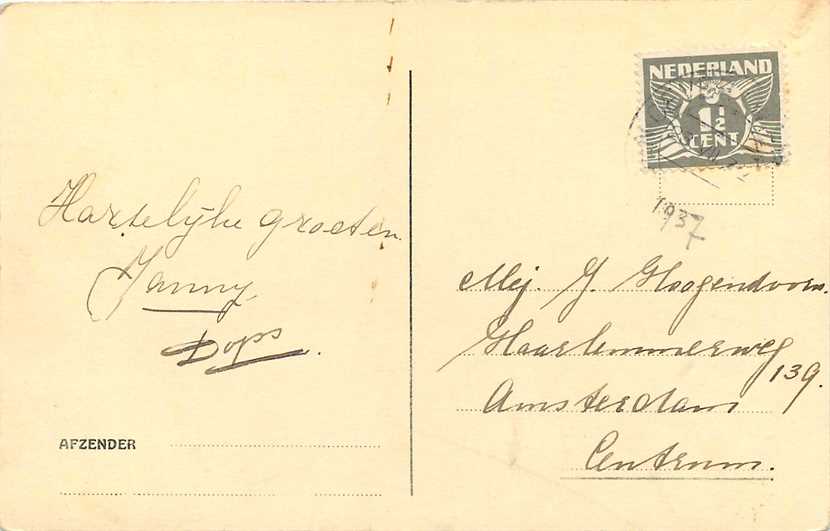 NEDERLAND
1½
CENT
1937
Hartelijke groeten
Janny
Dops.
Mej. J. Hoogendoorn.
Haarlemmerweg
139.
Amsterdam
Centrum.
AFZENDER